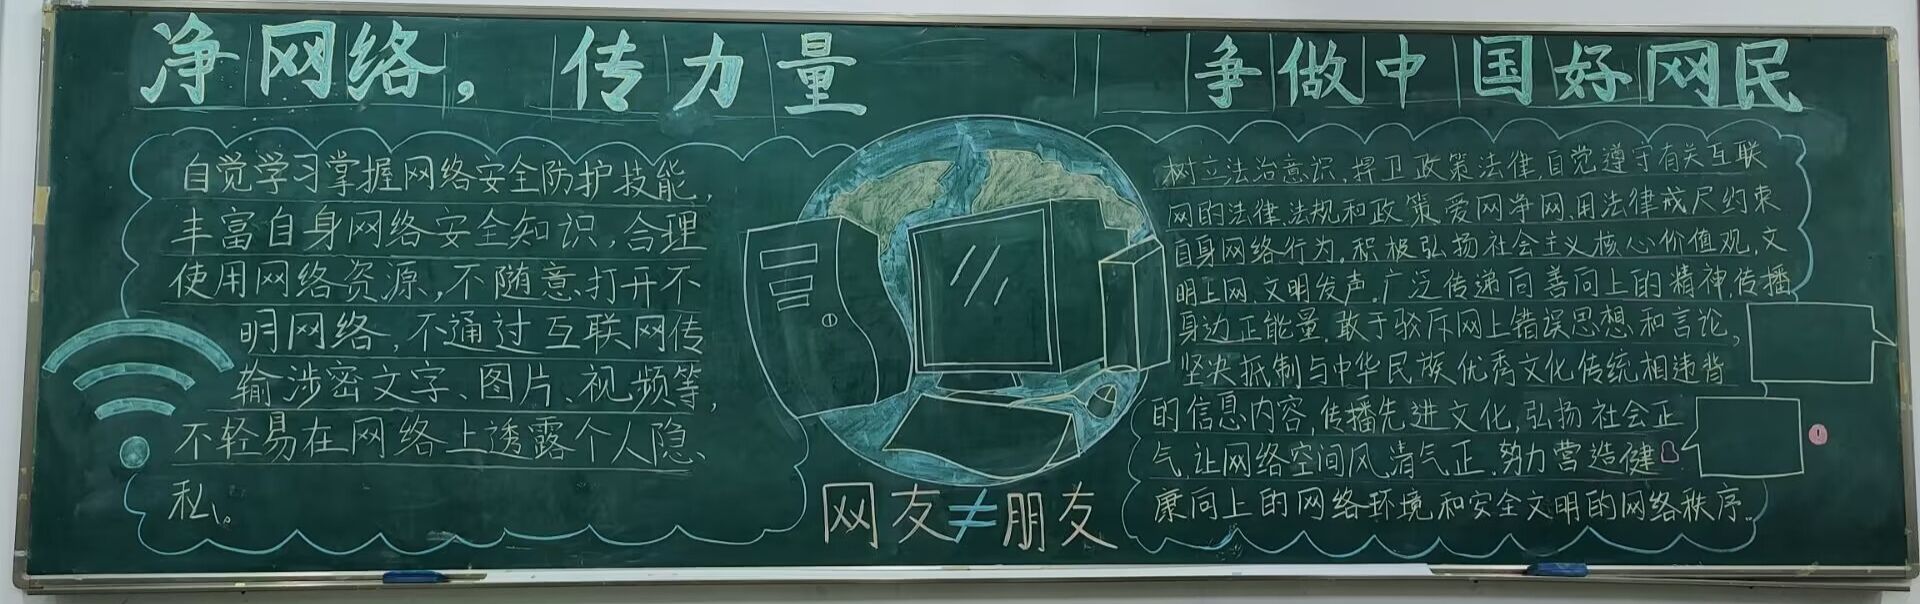 净网络，传力量
争做中国好网民
自觉学习掌握网络安全防护技能，
丰富自身网络安全知识，合理
使用网络资源，不随意打开不
明网络，不通过互联网传
输涉密文字、图片、视频等，
不轻易在网络上透露个人隐、
私。
网友≠朋友
树立法治意识，捍卫政策法律，自觉遵守有关互联
网的法律、法规和政策，爱网净网，用法律戒尺约束
自身网络行为。积极弘扬社会主义核心价值观，文
明上网，文明发声。广泛传递向善向上的精神，传播
身边正能量，敢于驳斥网上错误思想和言论，
坚决抵制与中华民族优秀文化传统相违背
的信息内容，传播先进文化，弘扬社会正
气，让网络空间风清气正，努力营造健
康向上的网络环境和安全文明的网络秩序。